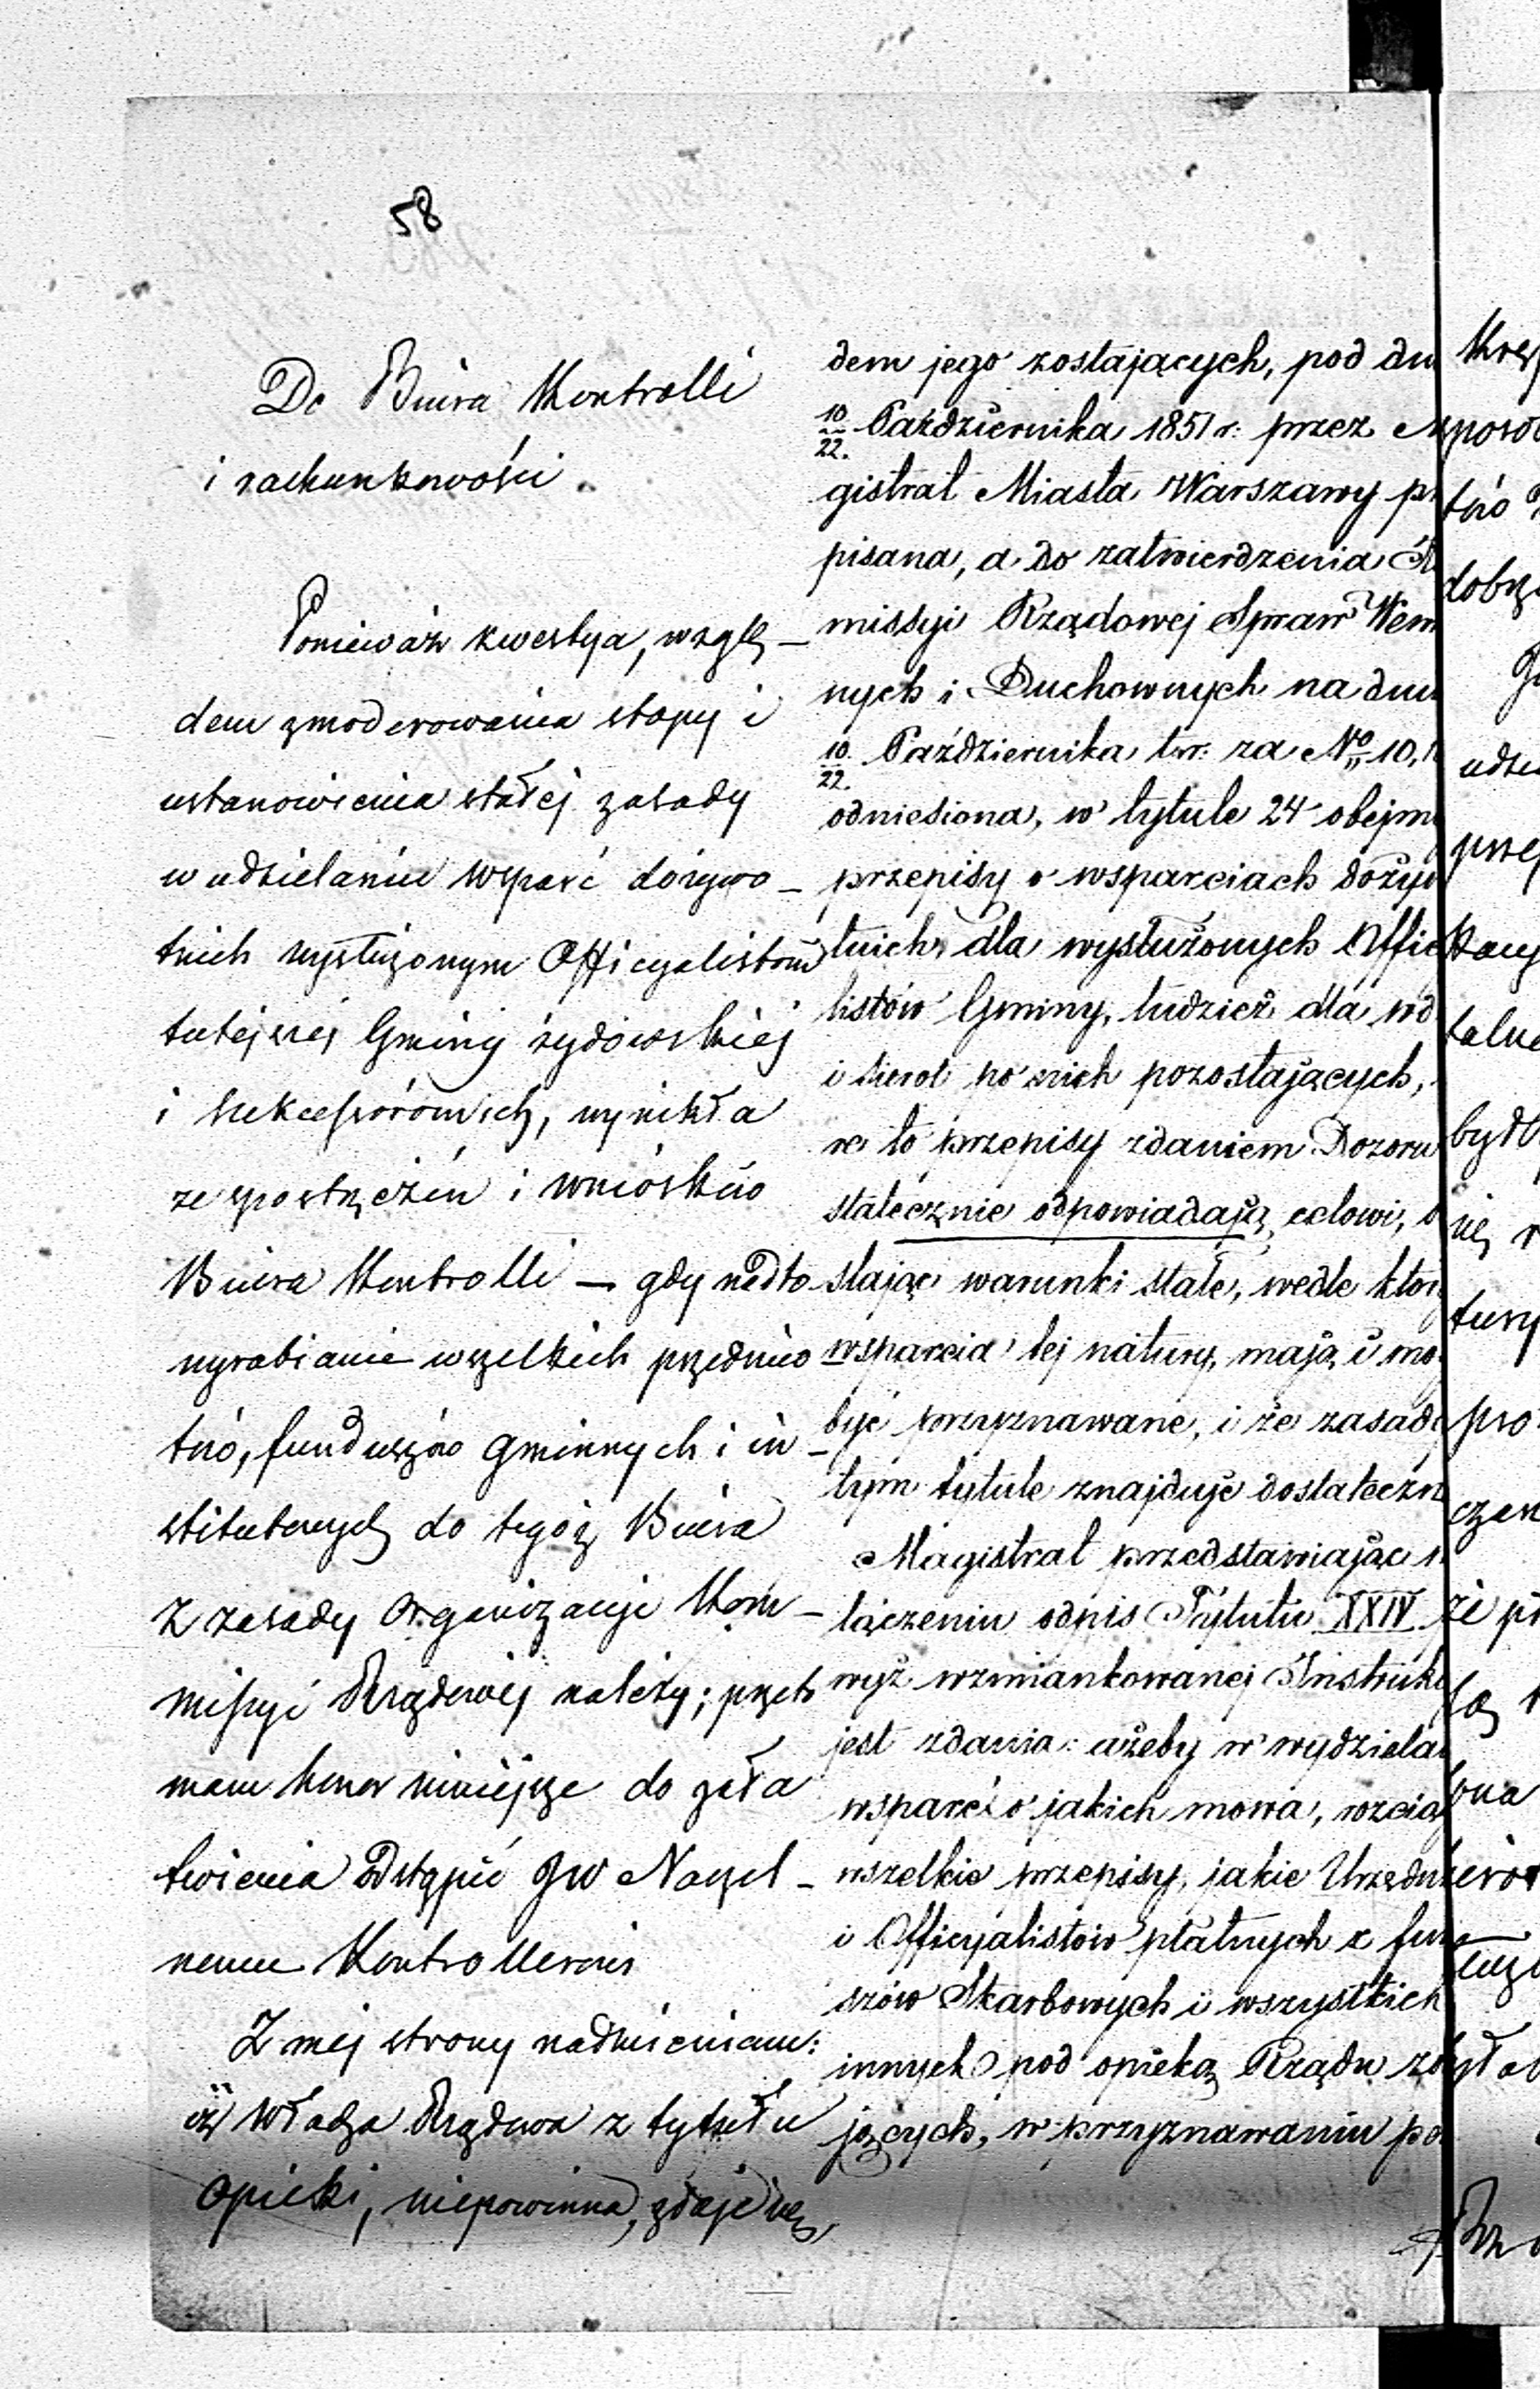 58
Do Biura Kontrolli
i rachunkowości.
Ponieważ kwestya, wzglę-
dem zmoderowania stopy i
ustanowienia stałej zasady
w udzielaniu wsparć dożywo-
tnich wysłużonym Officyalistom
tutejszej Gminy żydowskiej
i sukcessorom ich, wynikła
ze spostrzeżeń i wniosków
Biura Kontrolli — gdy nadto
wyrabianie wszelkich przedmio
tów, funduszów gminnych i in-
stitutowych do tegoż Biura
z zasady Organizacyi Kom-
missyi Rządowej należy; przeto
mam honor niniejsze do zała
twienia odstąpić JW Naczel-
nemu Kontrollerowi
Z mej strony nadmieniam:
iż Władza Rządowa z tytułu
opieki, niepowinna, zdaje się,
dem jego zostających, pod dn
10/22. Października 1851 r. przez Ma
gistrat Miasta Warszawy p
pisana, a do zatwierdzenia
missyi Rządowej Spraw Wewn
nych i Duchownych na dniu
10/22. Października t.r. za No 10,
odniesiona, w tytule 24 obejm
przepisy o wsparciach dożyw
tnich dla wysłużonych Offic
listów Gminy, tudzież dla wd
i sierot po nich pozostających,
re to przepisy zdaniem Dozoru
statecznie odpowiadają celowi,
stając warunki stałe, wedle któr
wsparcia tej natury, mają i mo
być przyznawane, i że zasad
tym tytule znajduje dostateczn
Magistrat przedstawiając
łączeniu odpis Tytułu XXIV
wyż wzmiankowanej Instrukc
jest zdania: ażeby w wydziela
wsparć o jakich mowa, rozcią
wszelkie przepisy, jakie Urzędn
i Officyalistów płatnych z fun
szów Skarbowych i wszystkich
innych pod opieką Rządu zo
jących, w przyznawaniu po